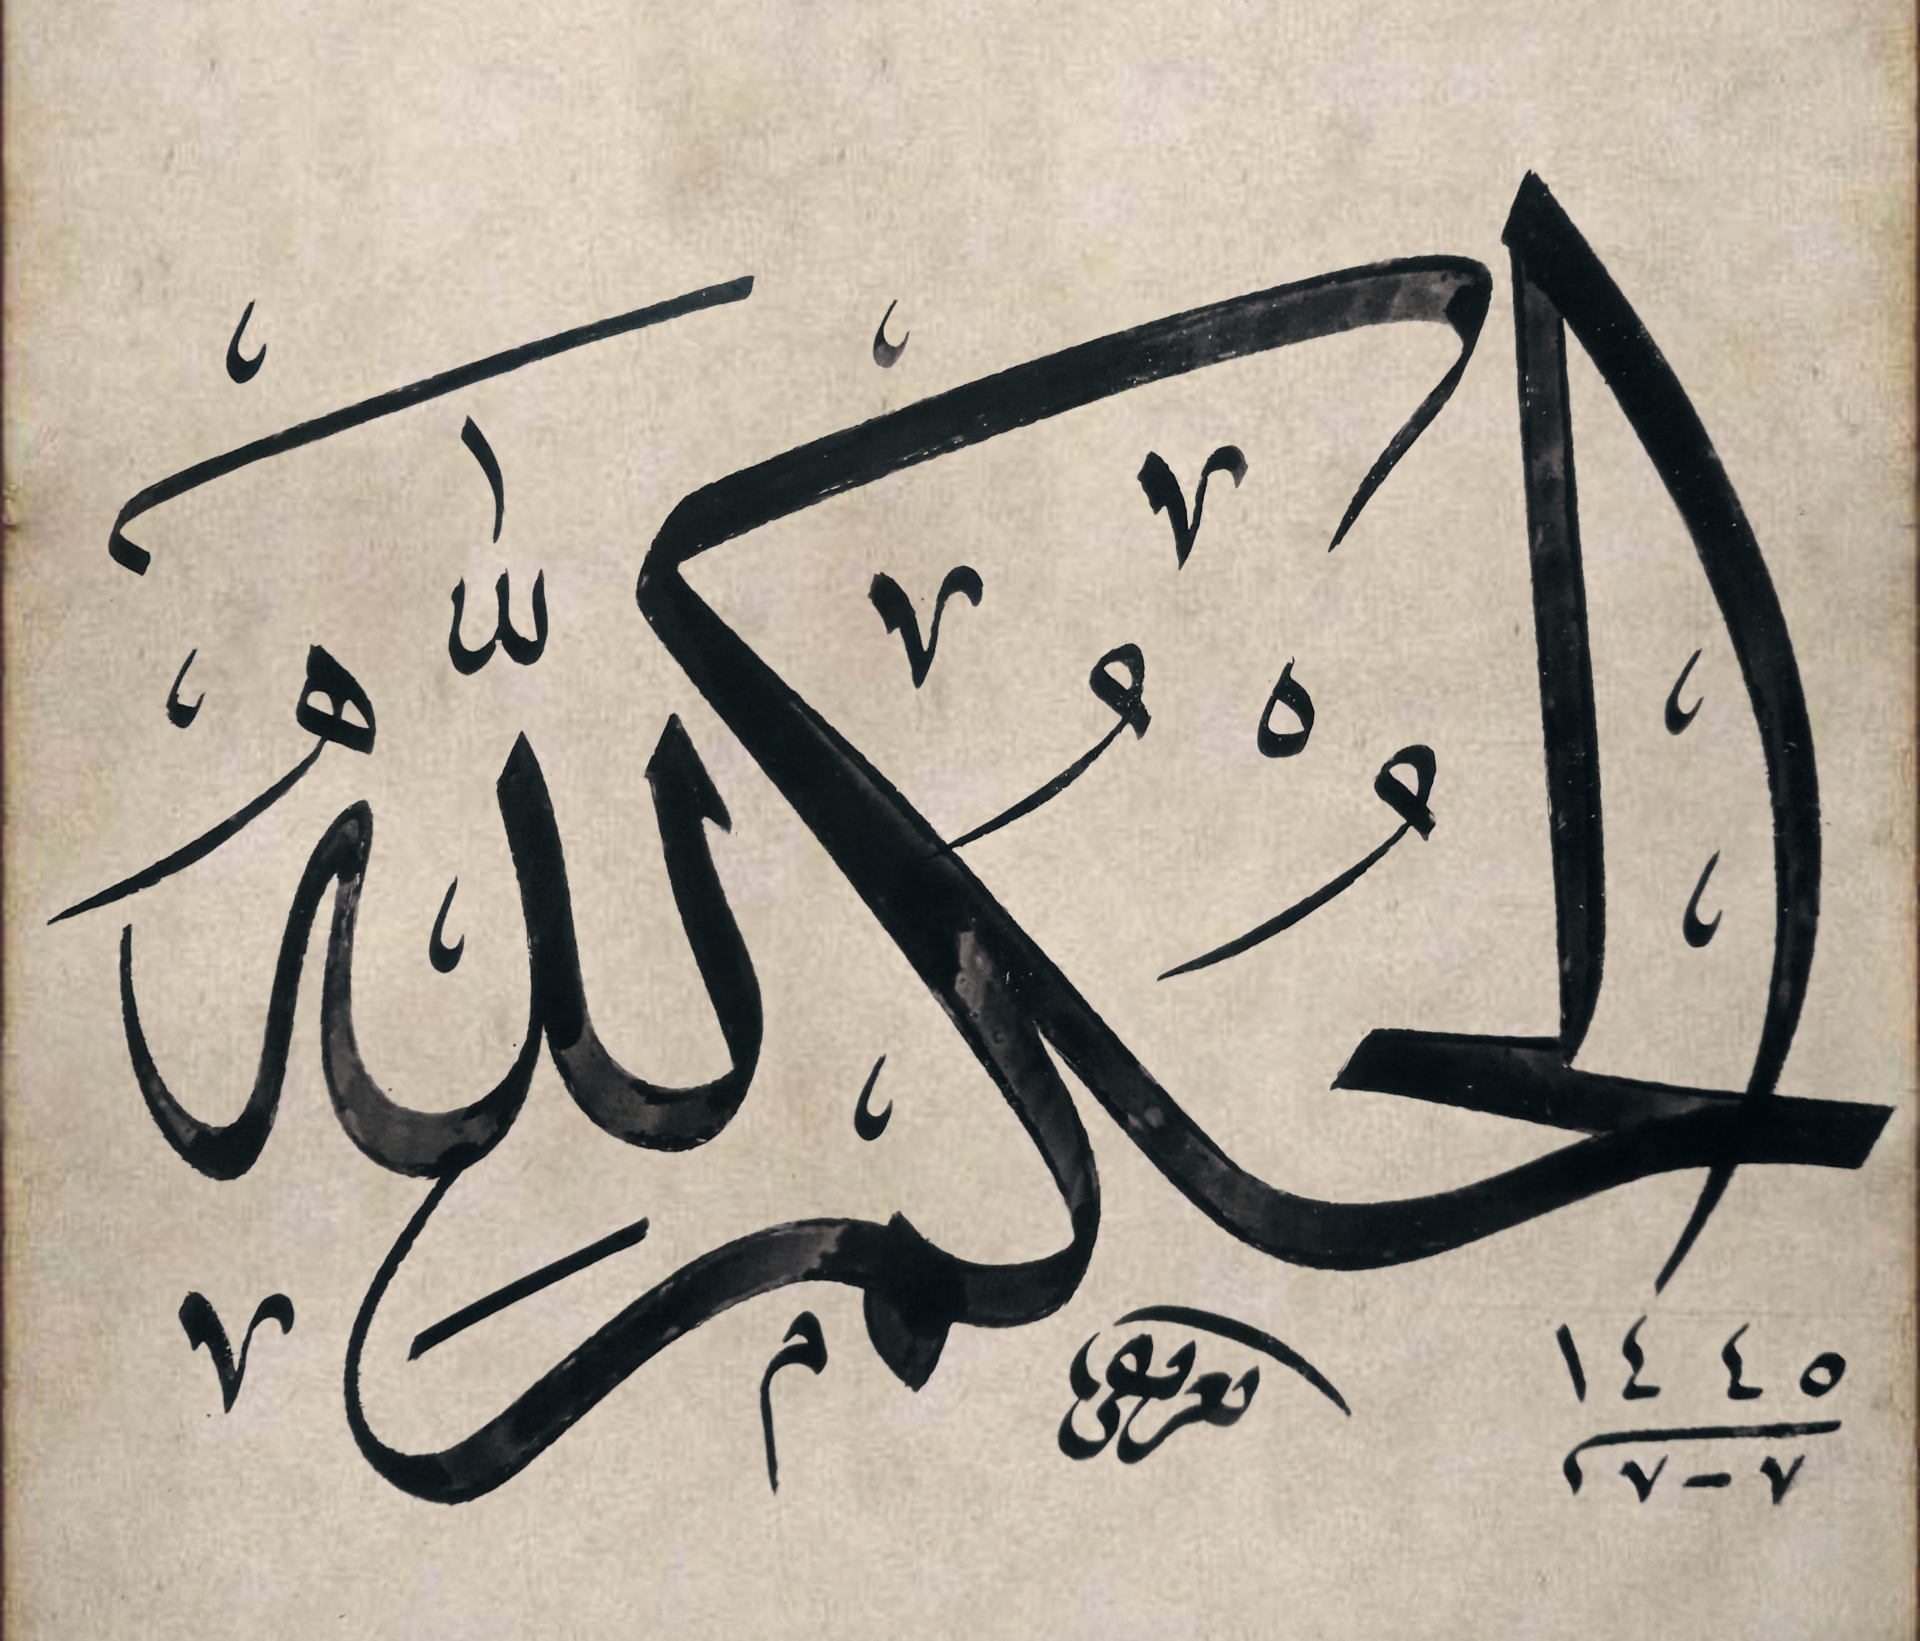 الحُكْمُ لِلّٰهِ
١٤٤٥
٧-٧